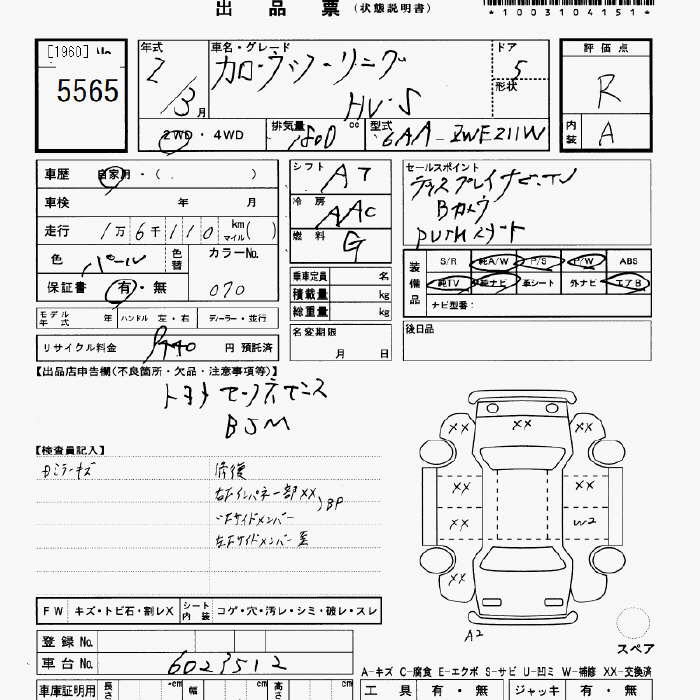 出品票 (状態説明書)
*1003104151*
[1960]
5565
年式 2/3月
車名・グレード カローラツーリング
HV・S
ドア 5
形状
評価点 R
内装 A
2WD・4WD
排気量 1800 cc
型式 6AA-ZWE211W
車歴 自家用・( )
車検 年 月
走行 1万6千110 km マイル( )
色 パール 色替
カラーNo. 070
保証書 有・無
モデル年式 年 ハンドル 左・右 ディーラー・並行
リサイクル料金 円 預託済
シフト AT
冷房 AAC
燃料 G
乗車定員 名
積載量 kg
総重量 kg
名変期限
月 日
セールスポイント
ディスプレイナビ・TV
Bカメラ
pushスタート
装備品
S/R 純A/W P/S P/W ABS
純TV 純ナビ 革シート 外ナビ エアB
ナビ型番:
後日品
【出品店申告欄(不良箇所・欠品・注意事項等)】
トヨタセーフティセンス
BSM
【検査員記入】
修復
右Fインパネ一部XX
BP
左Fサイドメンバー
FW キズ・トビ石・割レX
シート内装 コゲ・穴・汚レ・シミ・破レ・スレ
登録No.
車台No. 6023512
XX
XX
XX
XX
XX
XX
W2
XX
A2
スペア
A-キズ C-腐食 E-エクボ S-サビ U-凹ミ W-補修 XX-交換済
車庫証明用 長さ cm 幅 cm 高さ cm
工具 有・無 ジャッキ 有・無